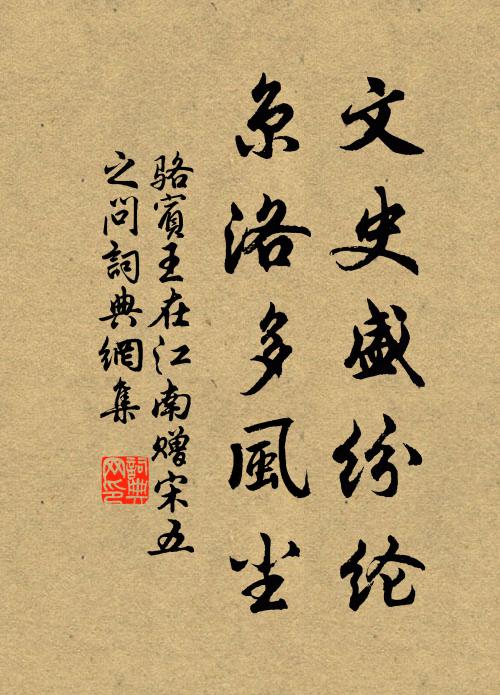 文史盛纷纶
京洛多風尘
骆賓王在江南赠宋五
之问詞典網集
詞典网印